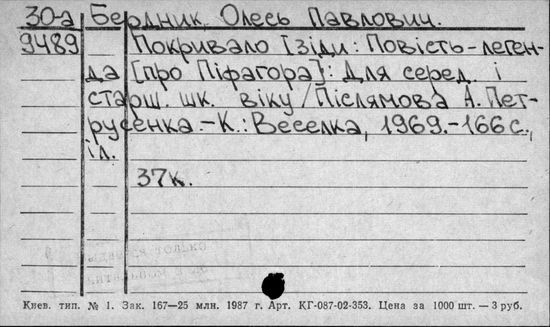 30-а Бердник, Олесь Павлович.
9489 Покривало Ізіди: Повість-леген-
да [про Піфагора]: Для серед. і
старш. шк. віку / Післямова А. Пет-
русенка.-К.: Веселка, 1969.-166 с.,
іл.
37к.
Киев. тип. № 1. Зак. 167—25 млн. 1987 г. Арт. КГ-087-02-353. Цена за 1000 шт. — 3 руб.